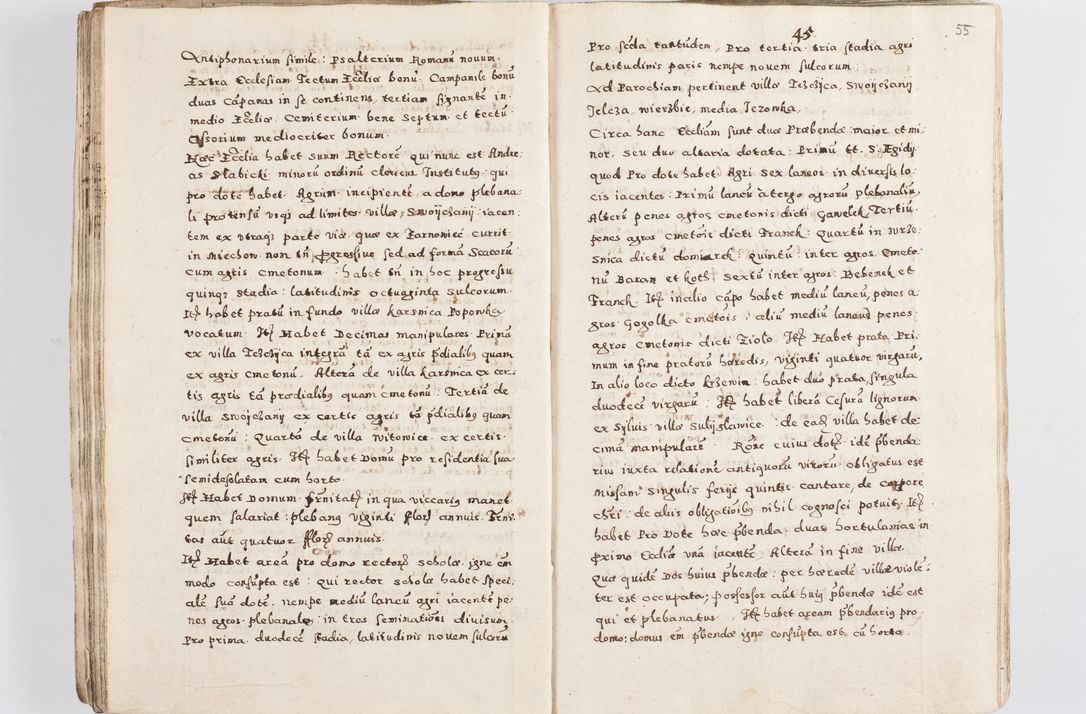 Antiphonarium simile: Psalterium Romanū nouum.
Extra Ecclesiam Tectum Ecc̄liæ bonū. Campanile bonū
duas cāpanas in se continens, tertiam signantē in
medio Ecc̄liæ: Cemiterium bene septum et tectū
Assorium mediocriter bonum.
Hæc Ecc̄lia habet suum Rectorē qui nunc est Andre:
as Slabicki minorū ordinū clericus Institutꝯ qui
pro dote habet Agrum incipientē a domo plebana:
li protensū vsqꝫ ad limites villæ Swoijczanij: iacen:
tem ex vtraqꝫ parte viæ, quæ ex Tarnowiec currit
in Miechow non tn̄ progressiue sed ad formā scacorū
cum agris cmetonum: habet tn̄ in hoc progressu
quinqꝫ stadia: latitudinis octuaginta sulcorum.
Itꝫ habet pratū in fundo villæ Karsnica Poporka
vocatum. Itꝫ Habet Decimas manipulares Primā
ex villa Tczczijca integrā tā ex agris p̄dialibꝯ quam
ex agris cmetonū. Alterā de villa Karsnica ex cer:
tis agris tā prædialibꝯ quam cmetonū: Tertiā de
villa Swoijczanij ex certis agris tā p̄dialibꝯ quam
cmetonū: Quartā de villa Witowice ex certis
similiter agris. Itꝫ habet Domū pro residentia sua
semidesolatam cum horto.
Itꝫ Habet Domum in qua viccariꝯ manet
quem salariat plebanꝯ viginti florꝫ annuis.
tas aūt quatuor florꝫ annuis.
Itꝫ Habet areā pro domo rectorꝫ scholæ, igne em̄
modo consūpta est: qui rector scholæ habet speci:
alē suā dotē. nempe mediū laneū agri iacentē pe:
nes agros plebanales: in tres seminatiōes diuisum.
Pro prima duodecē stadia, latitudinis nouem sulcorū
45 55
Pro sc̄da tantūdem, Pro tertia tria stadia agri
latitudinis paris nempe nouem sulcorum:
Ad Parochiam pertinent villæ Tczczijca, Swoijczanij
Jelcza, wierzbie, media Jezowka.
Circa hanc Eccl̄iam sunt duæ Præbendæ: maior et mi:
nor, seu duo altaria dotata: Primū tt. S. Egidij
quod Pro dote habet Agri sex laneos in diuersis lo:
cis iacentes. Primū laneū a tergo agrorū plebanaliū,
Alterū penes agros cmetonis dicti Gawelek, Tertiū
penes agros cmetōis dicti Franck: Quartū in Wrze:
snica dictū: Quintū: inter agros Cmeto:
nū Baran et koth: Sextū inter agros: Bebenek et
Franck. Itꝫ in alio cāpo habet mediū laneū, penes a:
gros Gogolka cmetōis: aliū mediū laneū penes
agros cmetonis dicti Ziolo. Itꝫ Habet prata Pri:
mum in fine pratorū hæredis, viginti quatuor virgarū,
In alio loco dicto krzewin: habet duo prata, singula
duodecē virgarū: Itꝫ habet liberā cesurā lignorum
ex syluis villæ Sulijslawice: de eadꝫ villa habet de:
cimā manipularē. Rōne cuius dotꝫ idē p̄benda:
rius iuxta relationē antiquorū virorū obligatus est
Missam singulis ferijs quintis cantare, de corpore
chr̄i: de alijs obligatioībꝯ nihil cognosci potuit. Itꝫ
habet Pro Dote hæc p̄benda duas hortulanias in
p̄ximo Eccliæ vnā iacentē, Alterā in fine villæ.
Quæ quidē Dos huius p̄bendæ: per hæredē villæ viole:
ter est occupata; possessor aūt huiꝯ p̄bendæ idē est
qui et plebanatus. Itꝫ habet aream p̄bendariꝯ pro
domo: domus em̄ p̄bendæ igne consūpta est cū horto.